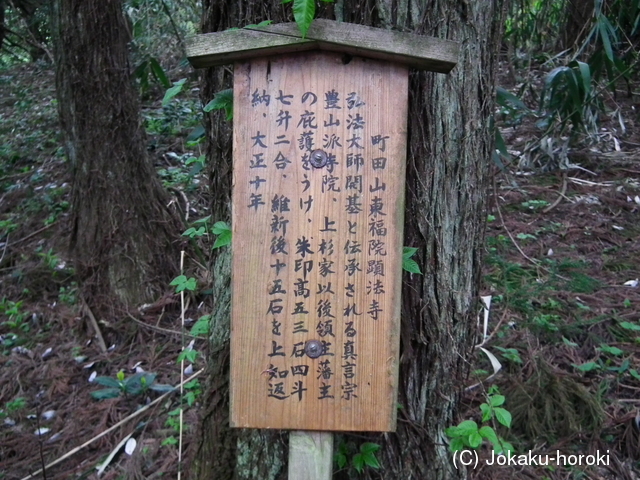 町田山東福院顕法寺
弘法大師開基と伝承される真言宗
豊山派寺院、上杉家以後領主藩主
の庇護をうけ、朱印高五三石四斗
七升二合、維新後十五石を上知返
納、大正十年
(C) Jokaku-horoki